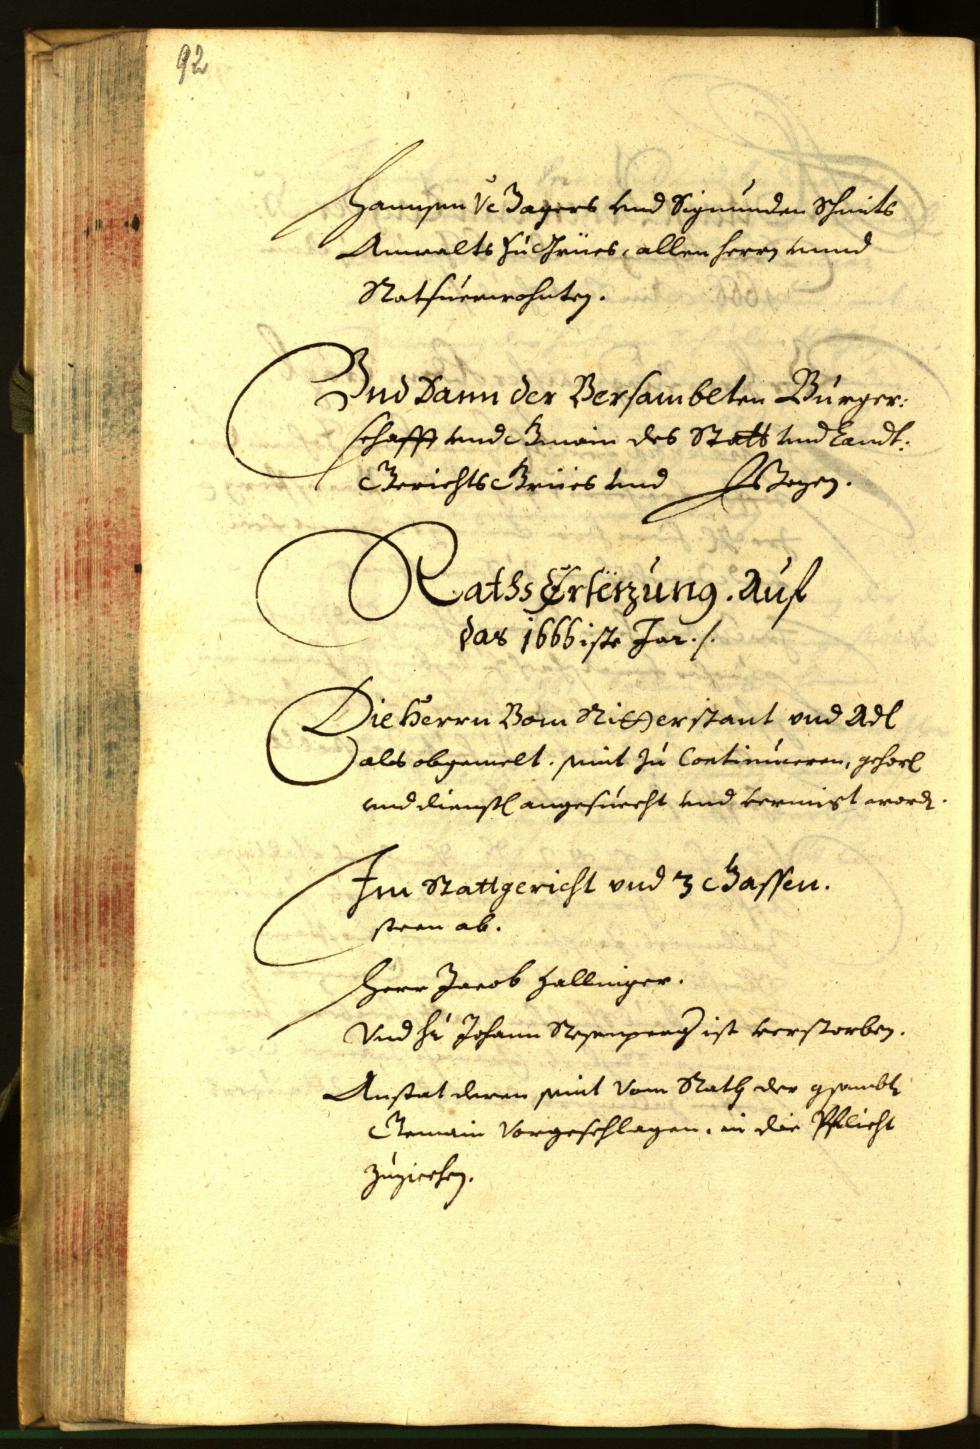 92
Hannsen Vc Jagers vnd Sigmunden Schmits
Anwalts zu Gries, allen herrn vnnd
Ratsfreundten.
Vnd Dann der Versambleten Bürger:
schafft vnd Gmain des Statt vnd Landt:
Gerichts Gries vnd Bozen.
Raths Ersetzung. Auf
das 1666iste Jar./.
Die Herrn Vom Ritterstant vnd Adl
als obgemelt. seint zu Continuieren, gehorl
vnd dienstl angesuecht vnd worden.
Im Stattgericht vnd 3 Gassen.
steen ab.
Herr Jacob Hallinger.
Vnd Hr Johann ist verstorben.
Anstat deren seint vom Rath der gsambtl
Gemain Vorgeschlagen, in die Pflicht
zuziechen.